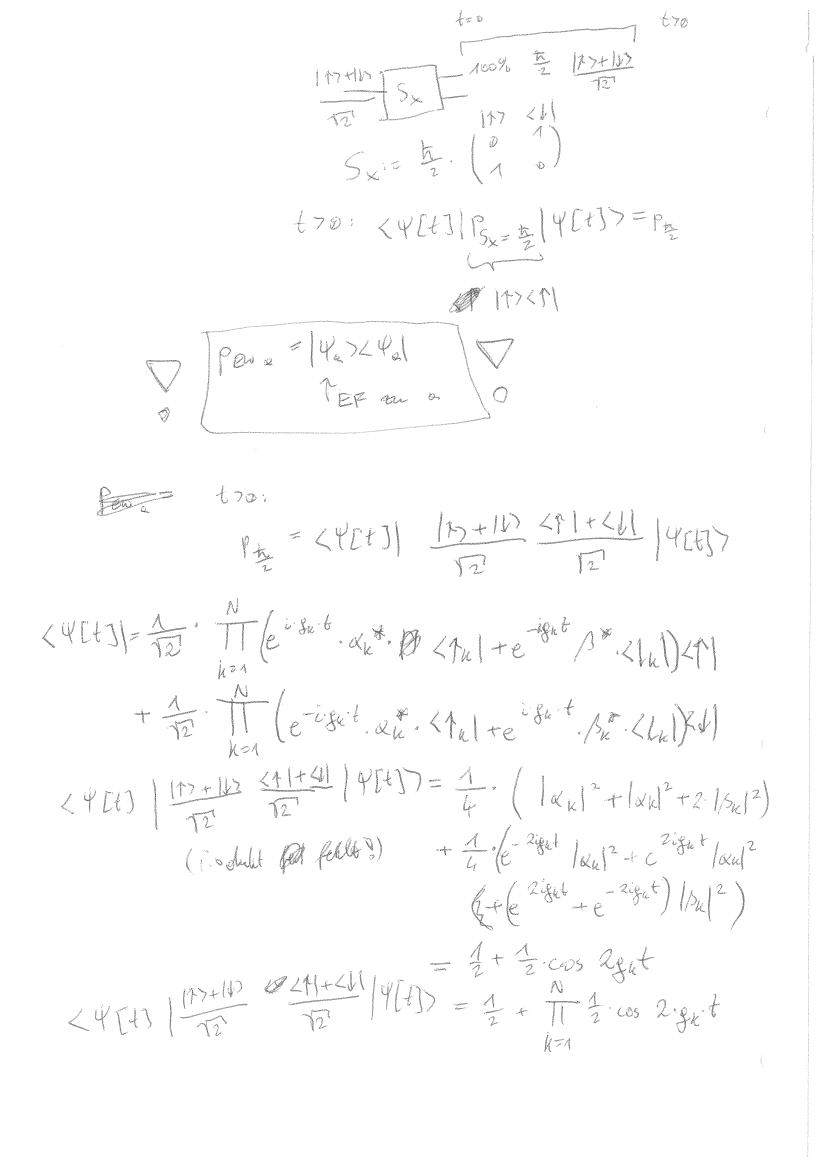 t=0 t>0
|↑>+|↓> / √2 Sx 100% ħ/2 |↑>+|↓> / √2
|↑> <↓|
Sx := ħ/2 · (0 1
1 0)
t>0: <Ψ[t]|P_{Sx=ħ/2}|Ψ[t]> = p_{ħ/2}
|↑><↑|
P_{EW a} = |Ψ_a><Ψ_a|
↑ EF zu a
t>0:
p_{ħ/2} = <Ψ[t]| (|↑>+|↓>)/√2 (<↑|+<↓|)/√2 |Ψ[t]>
<Ψ[t]| = 1/√2 · ∏_{k=1}^{N} (e^{i·g_k·t} · α_k^* · <↑_k| + e^{-ig_kt} β^* · <↓_k|)<↑|
+ 1/√2 · ∏_{k=1}^{N} (e^{-i·g_k·t} · α_k^* · <↑_k| + e^{i·g_k·t} · β_k^* · <↓_k|)<↓|
<Ψ[t] | (|↑>+|↓>)/√2 (<↑|+<↓|)/√2 |Ψ[t]> = 1/4 · (|α_k|² + |α_k|² + 2·|β_k|²)
(Produkt fehlt!) + 1/4 · (e^{-2ig_kt} |α_k|² + e^{2ig_kt} |α_k|²
+ (e^{2ig_kt} + e^{-2ig_kt}) |β_k|²)
= 1/2 + 1/2 · cos 2g_kt
<Ψ[t] | (|↑>+|↓>)/√2 (<↑|+<↓|)/√2 |Ψ[t]> = 1/2 + ∏_{k=1}^{N} 1/2 · cos 2·g_k·t